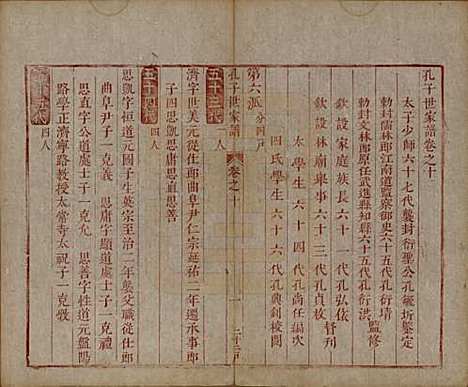 孔子世家譜卷之十
太子少師六十七代襲封衍聖公孔毓圻鑒定
勅封文林郎江南道監察御史六十五代孔衍
勅封文林郎原任武進縣知縣六十五代孔衍洪 監修
欽設家庭族長六十一代孔弘依
欽設林廟舉事六十三代孔貞枚 督刊
太學生六十四代孔尚任
四氏學生六十六代孔興釗校閱
第六派 分四戶
孔子世家譜 卷之十 一 二十戶
五十三代 一人
濟字世美元從仕郎曲阜尹仁宗延祐二年遷承事
子四思凱思庸思直思善
五十四代 四人
思凱字恒道元國子生英宗至治二年襲父職從仕郎
曲阜尹子一克欽 思庸字顯道處士子一克
思直字公道處士子一克允 思善字性道元盤陽
路學正濟寧路教授太常寺太祝子一克
五十五代 四人